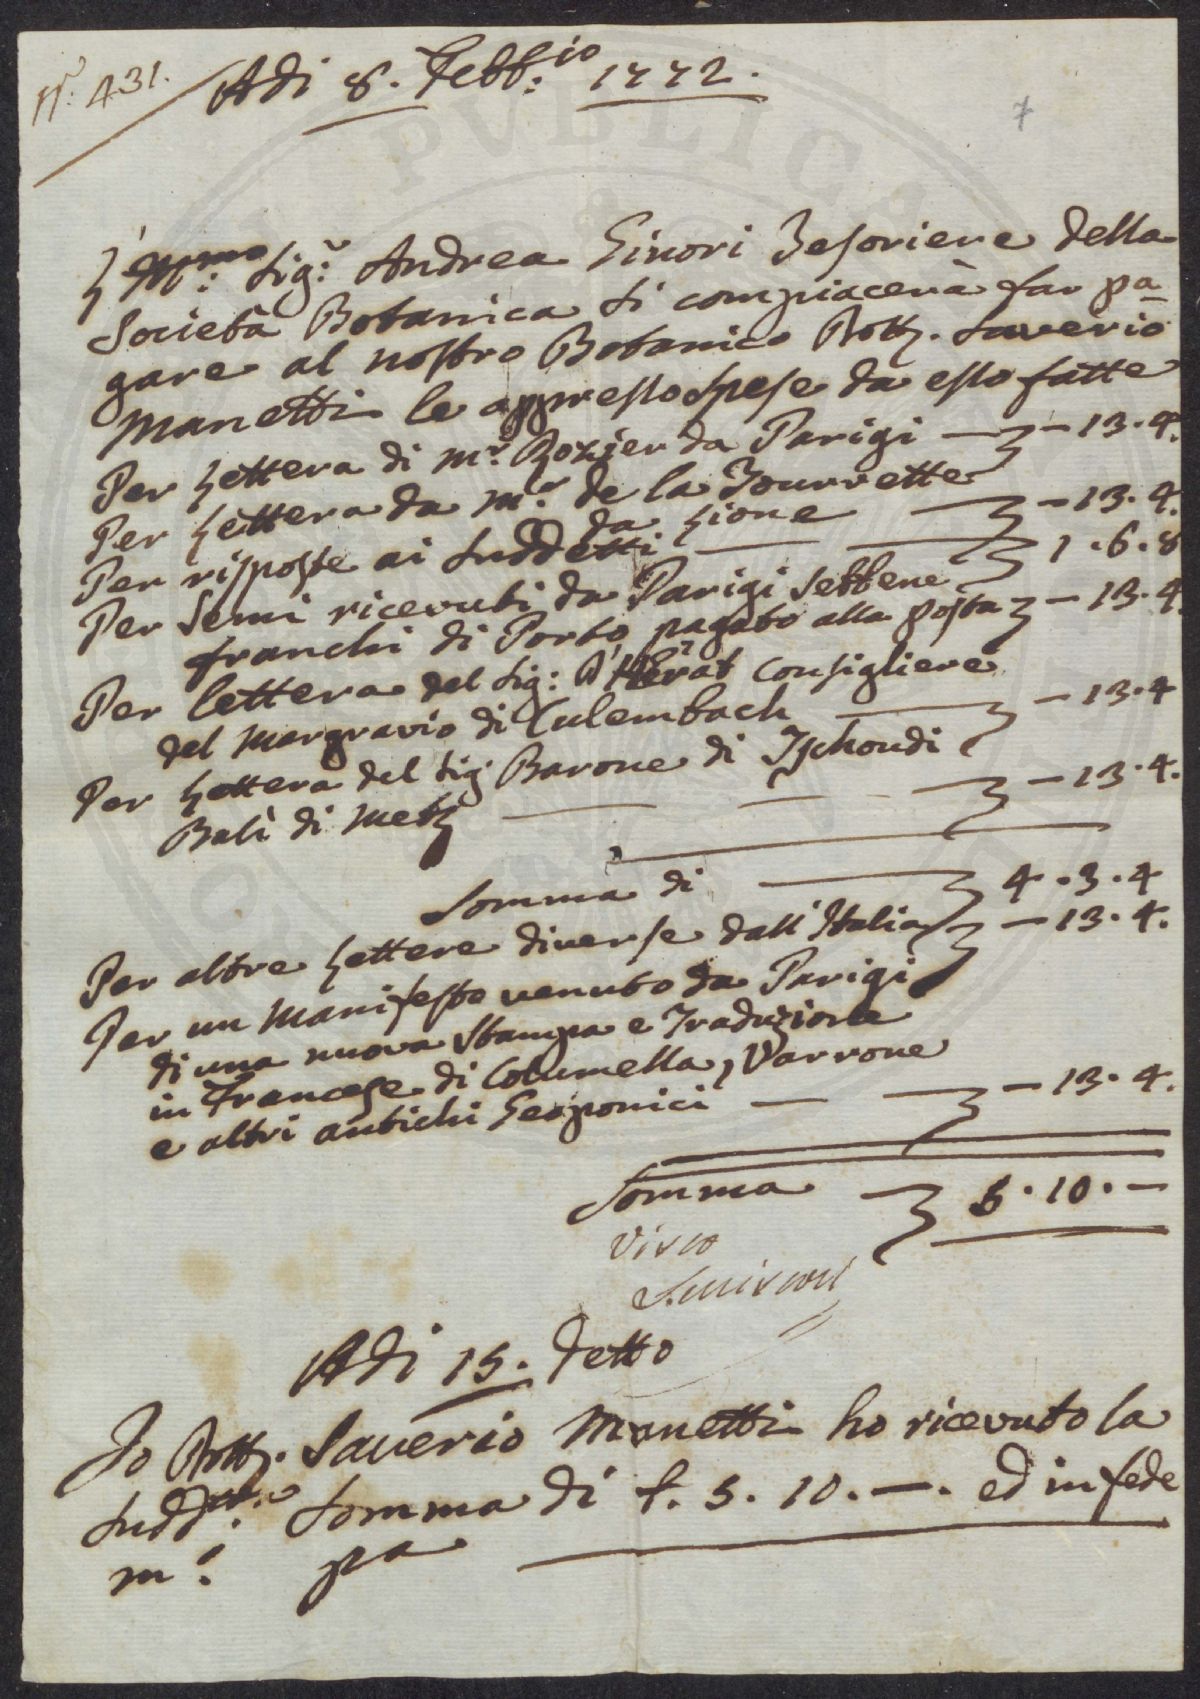 Nº. 431.
Adi 8. Febb:io 1772.
7
L'Illmo: Sig:r Andrea Ginori Tesoriere della
Società Botanica si compiacerà far pa-
gare al nostro Botanico Dott. Saverio
Manetti le appresso spese da esso fatte
Per Lettera di Mr. Rozier da Parigi — — 13. 4.
Per Lettera da Mr. de la Tourrette
da Lione — — 13. 4.
Per risposte ai suddetti — — 1. 6. 8
Per semi ricevuti da Parigi sebbene
franchi di Porto, pagato alla posta — 13. 4.
Per lettera del Sig: D'Herat Consigliere
del Margravio di Culembach — — 13. 4
Per Lettera del Sig. Barone di Tschoudi
Balì di Metz — — — 13. 4.
Somma di — 4. 3. 4
Per altre Lettere diverse dall'Italia — 13. 4.
Per un Manifesto venuto da Parigi
di una nuova Stampa e Traduzione
in Francese di Columella, Varrone
e altri antichi Geoponici — — — 13. 4.
Somma 5. 10. —
Visto
Adi 15. detto
Io Dott. Saverio Manetti ho ricevuto la
sudd:ta Somma di £. 5. 10. —. ed in fede
m: pa
PVBLICA